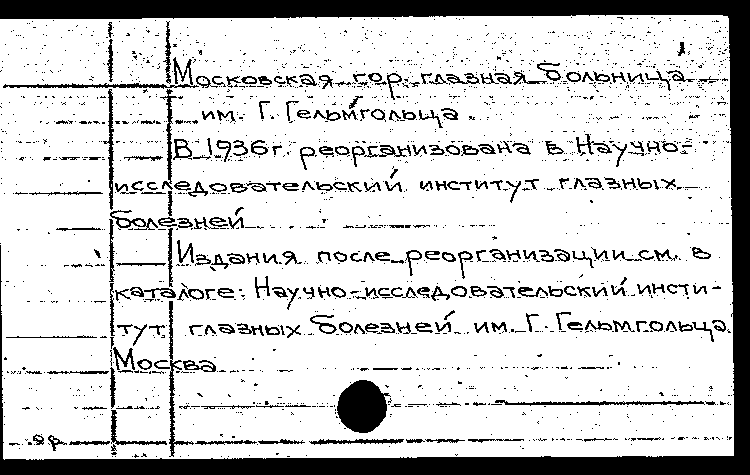 Московская гор. глазная больница
им. Г. Гельмгольца.
В 1936 г. реорганизована в Научно-
исследовательский институт глазных
болезней
Издания после реорганизации см. в
каталоге: Научно-исследовательский инсти-
тут глазных болезней им. Г. Гельмгольца.
Москва